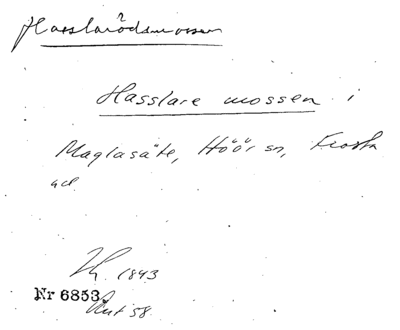 Hasslarödsmossen
Hasslare mossen i
Maglasäte, Höör sn, Frosta
hd.
1843
Nr 6853.
58.